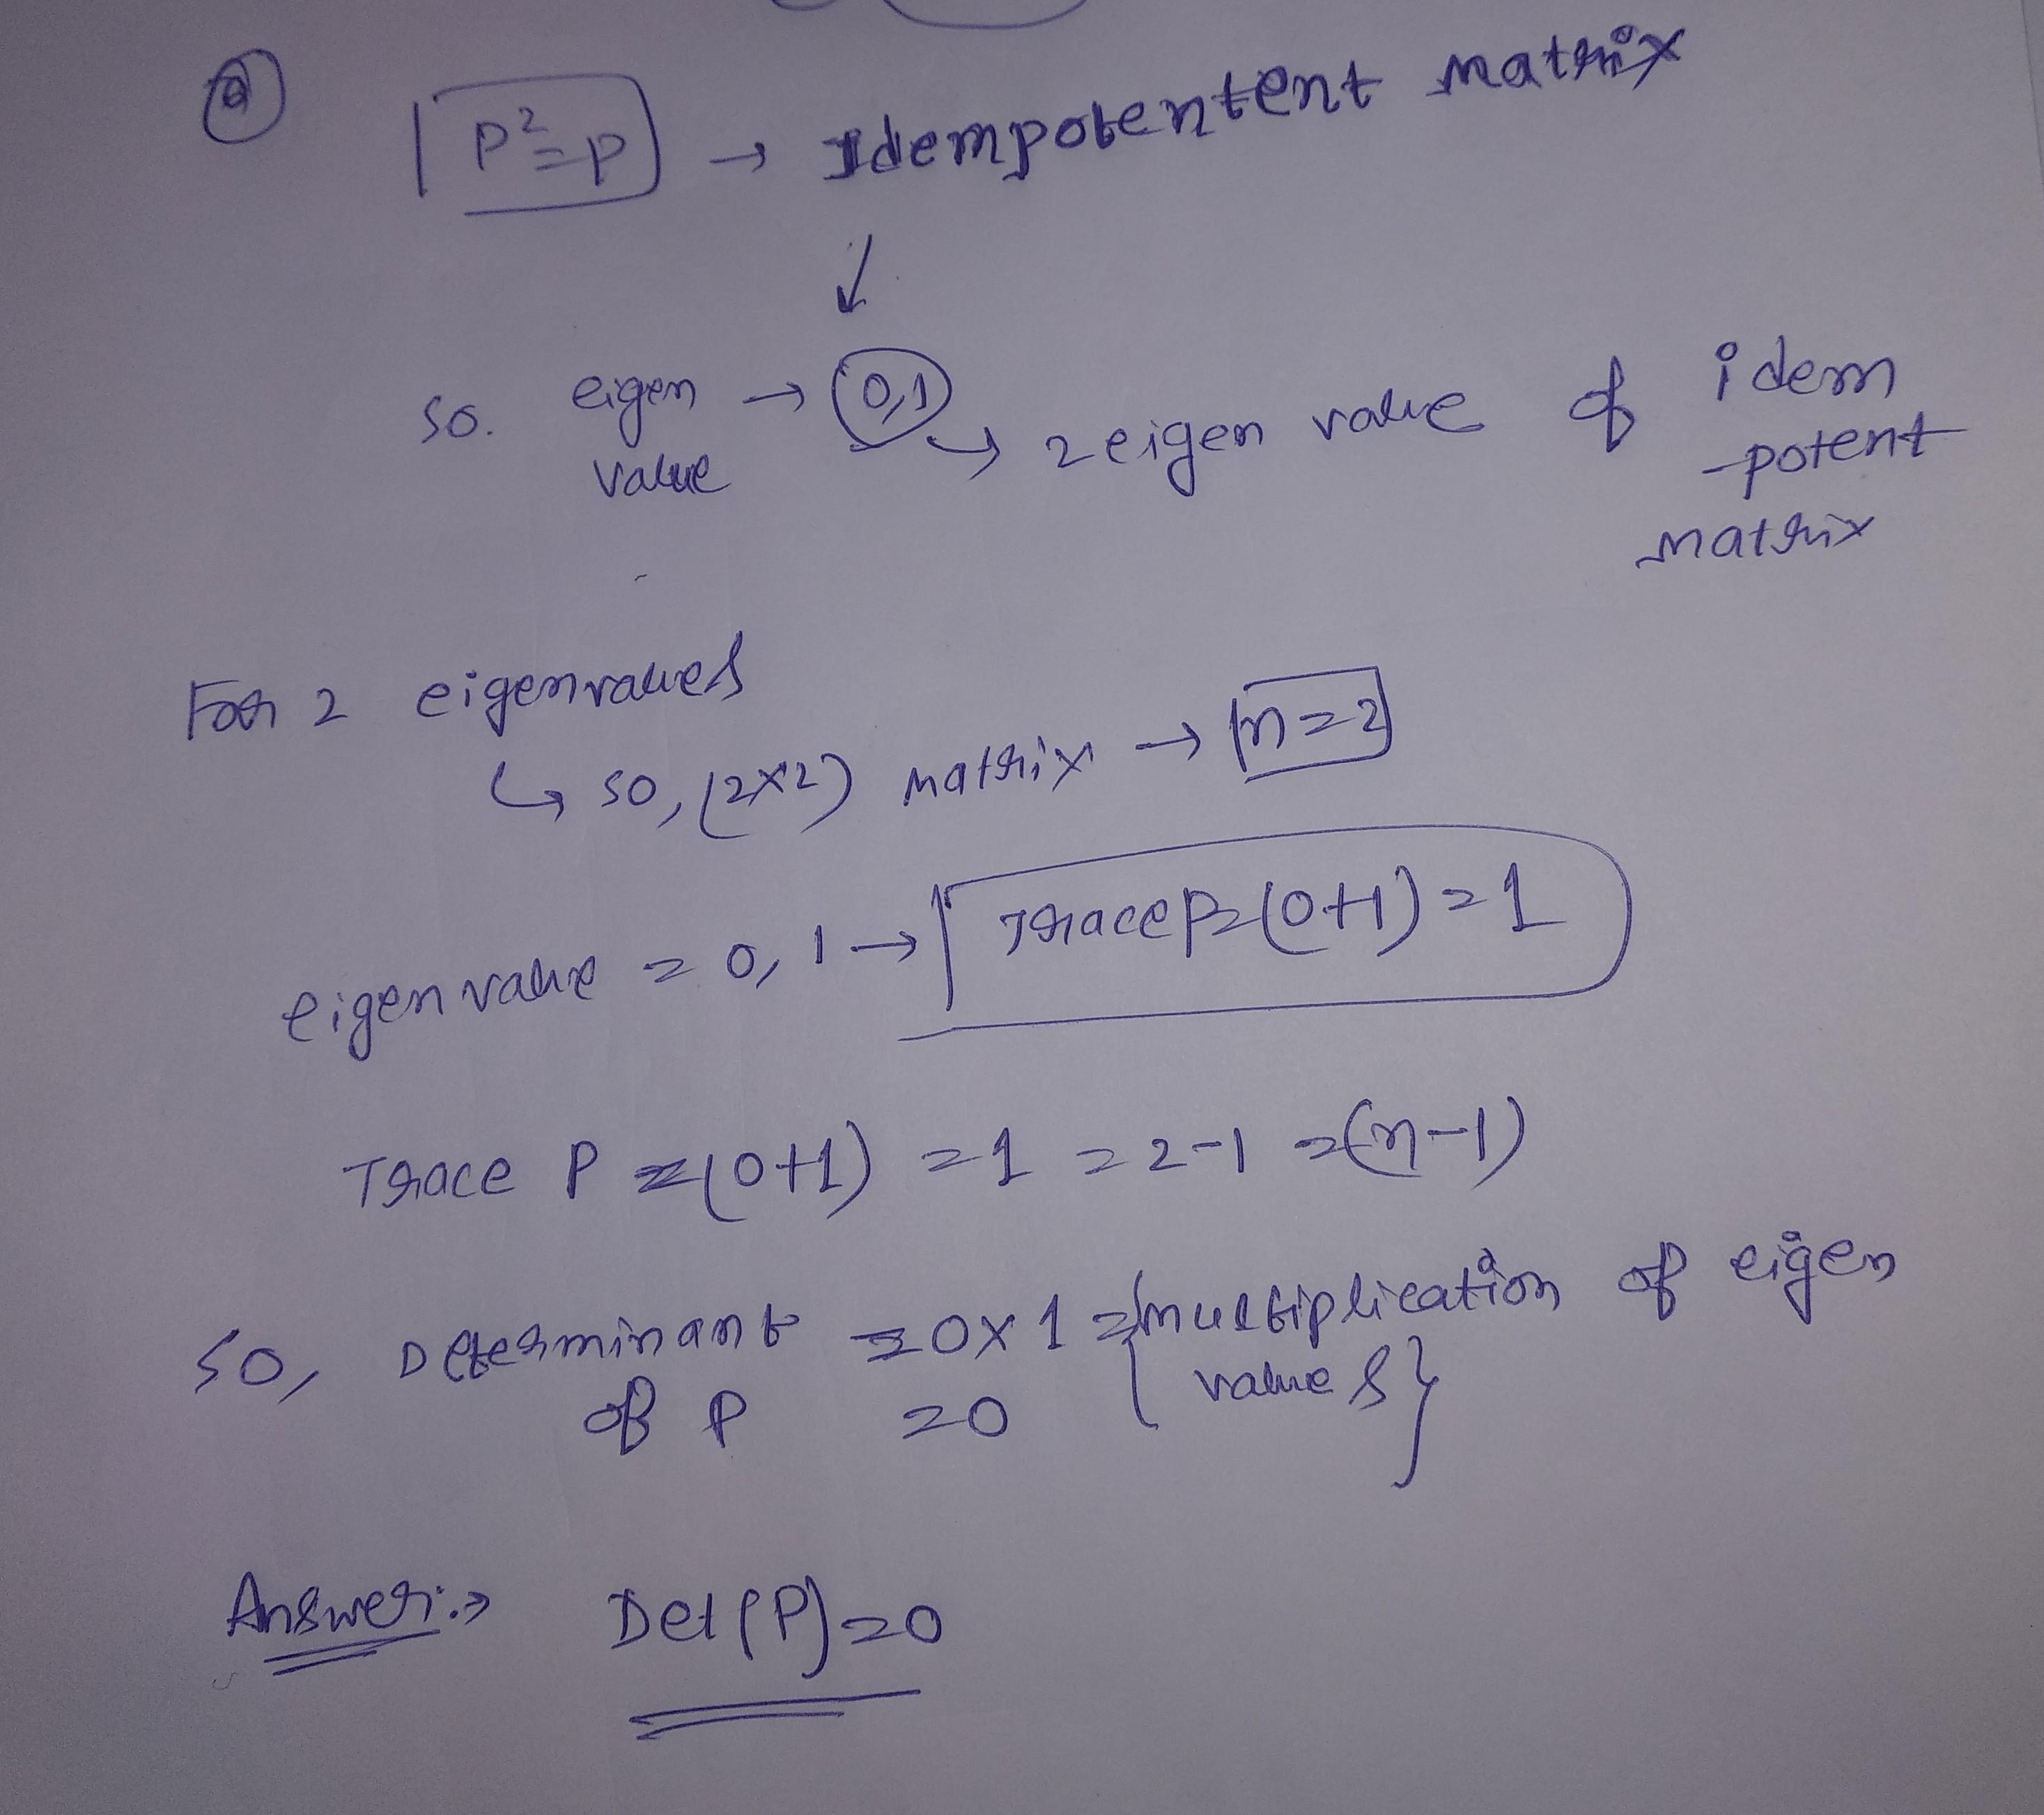 Q
P²=P → Idempotentent matrix
↓
so. eigen value → 0,1 → 2 eigen value of idem-potent matrix
For 2 eigenvalues
↳ so, (2×2) matrix → n=2
eigen value = 0, 1 → Trace P=(0+1)=1
Trace P =(0+1) =1 =2-1 =(n-1)
so, Determinant of P =0×1 ={multiplication of eigen values}
=0
Answer:→ Det(P)=0